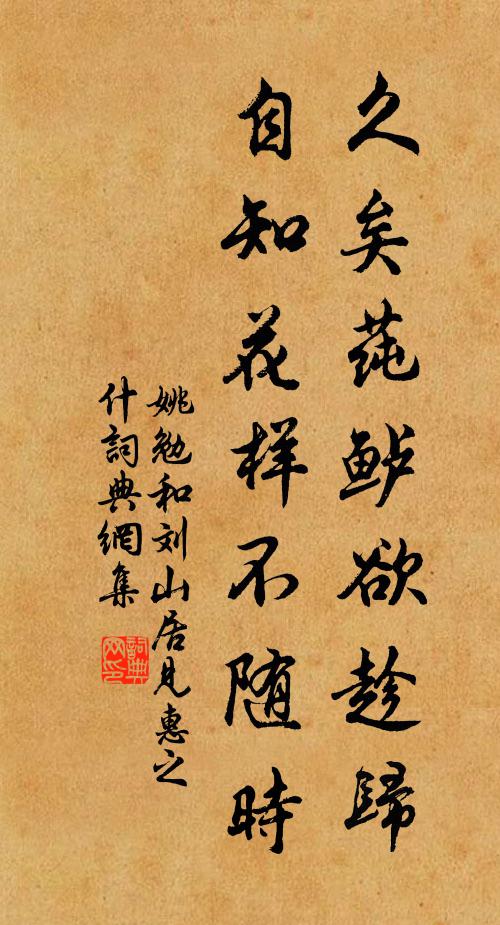 久矣莼鲈欲趁歸
自知花样不随時
姚勉和刘山居見惠之
什詞典網集
詞典網印